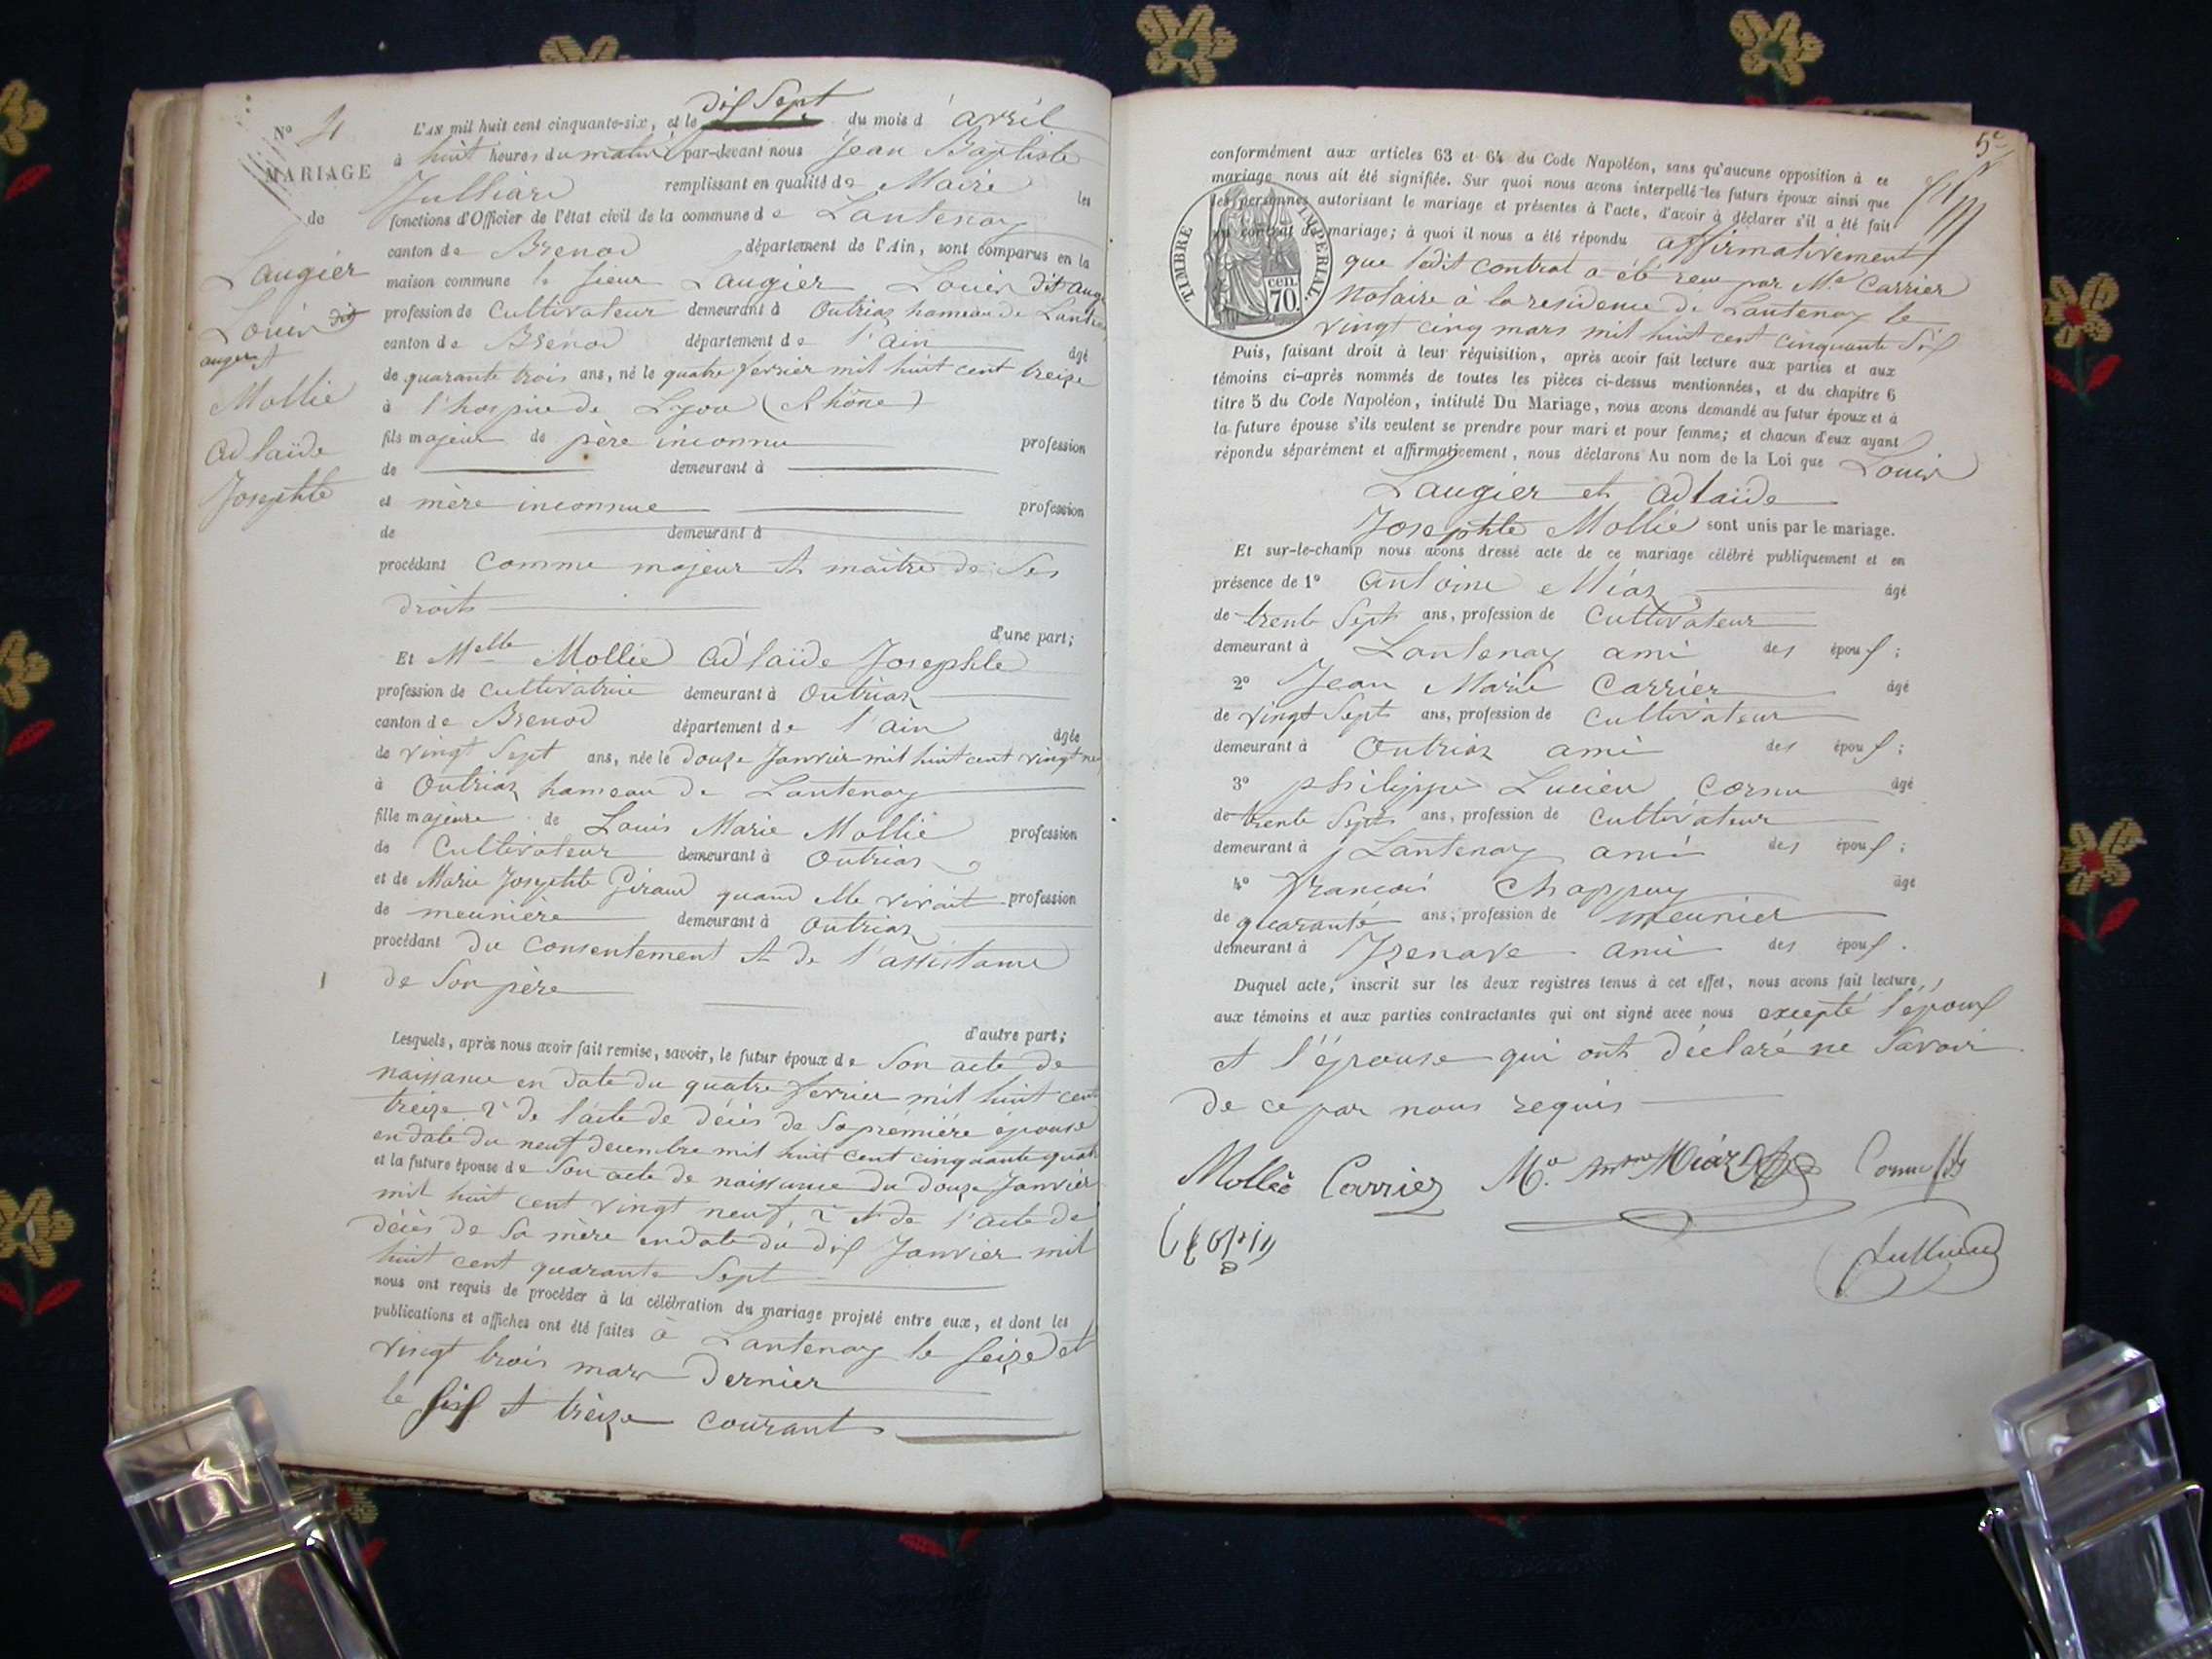 N° 4
MARIAGE
de
Laugier
Louis dit
auger et
Mollie
Adlaïde
Josephte
dix Sept
L'an mil huit cent cinquante-six, et le du mois d'avril
à huit heures du matin par-devant nous Jean Baptiste
Julliard remplissant en qualité de Maire les
fonctions d'Officier de l'état civil de la commune de Lantenay
canton de Brenod département de l'Ain, sont comparus en la
maison commune le sieur Laugier Louis dit auger
profession de Cultivateur demeurant à Outriaz hameau de Lantenay
canton de Brenod département de l'ain âgé
de quarante trois ans, né le quatre fevrier mil huit cent treize
à l'hospice de Lyon (Rhône)
fils majeur de père inconnu profession
de demeurant à
et mère inconnue profession
de demeurant à
procédant comme majeur et maître de ses
droits
d'une part;
Et Melle Mollie Adlaïde Josephte
profession de cultivatrice demeurant à Outriaz
canton de Brenod département de l'ain âgée
de vingt Sept ans, née le douze Janvier mil huit cent vingt neuf
à Outriaz hameau de Lantenay
fille majeure de Louis Marie Mollie profession
de Cultivateur demeurant à Outriaz
et de Marie Josephte Giraud quand elle vivait profession
de meunière demeurant à Outriaz
procédant du consentement et de l'assistance
de Son père
d'autre part;
Lesquels, après nous avoir fait remise, savoir, le futur époux de Son acte de
naissance en date du quatre fevrier mil huit cent
treize 2° de l'acte de décès de Sa prémière épouse
en date du neuf decembre mil huit cent cinquante quatre
et la future épouse de Son acte de naissance du douze Janvier
mil huit cent vingt neuf, 2° et de l'acte de
décès de Sa mère en date du dix Janvier mil
huit cent quarante Sept
nous ont requis de procéder à la célébration du mariage projeté entre eux, et dont les
publications et affiches ont été faites à Lantenay le Seize et
vingt trois mars dernier
le six et treize courant
5e
conformément aux articles 63 et 64 du Code Napoléon, sans qu'aucune opposition à ce
mariage nous ait été signifiée. Sur quoi nous avons interpellé les futurs époux ainsi que
les personnes autorisant le mariage et présentes à l'acte, d'avoir à déclarer s'il a été fait
un contrat de mariage; à quoi il nous a été répondu affirmativement
TIMBRE IMPÉRIAL.
cen.
70.
que ledit contrat a été reçu par Me Carrier
Notaire à la residence de Lantenay le
vingt cinq mars mil huit cent cinquante six
Puis, faisant droit à leur réquisition, après avoir fait lecture aux parties et aux
témoins ci-après nommés de toutes les pièces ci-dessus mentionnées, et du chapitre 6
titre 5 du Code Napoléon, intitulé Du Mariage, nous avons demandé au futur époux et à
la future épouse s'ils veulent se prendre pour mari et pour femme; et chacun d'eux ayant
répondu séparément et affirmativement, nous déclarons Au nom de la Loi que Louis
Laugier et Adlaïde
Josephte Mollie sont unis par le mariage.
Et sur-le-champ nous avons dressé acte de ce mariage célébré publiquement et en
présence de 1° Antoine Miaz âgé
de trente Sept ans, profession de Cultivateur
demeurant à Lantenay ami des époux;
2° Jean Marie Carrier âgé
de vingt Sept ans, profession de cultivateur
demeurant à Outriaz ami des époux;
3° philippe Lucien Cornu âgé
de trente Sept ans, profession de cultivateur
demeurant à Lantenay ami des époux;
4° francois Chappuy âgé
de quarante ans, profession de meunier
demeurant à Izenave ami des époux.
Duquel acte, inscrit sur les deux registres tenus à cet effet, nous avons fait lecture,
aux témoins et aux parties contractantes qui ont signé avec nous excepté l'époux
et l'épouse qui ont déclaré ne Savoir
de ce par nous requis
Mollie Carrier Miaz Cornu
Julliard